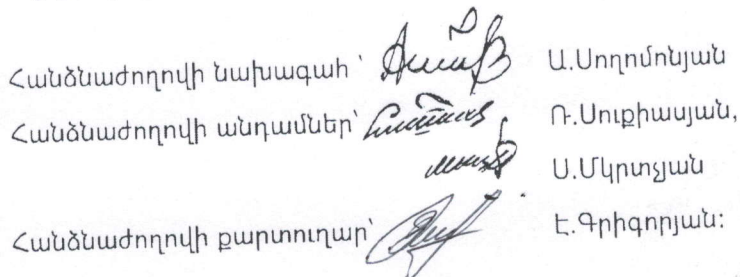 Հանձնաժողովի նախագահ ՝ Ա.Սողոմոնյան
Հանձնաժողովի անդամներ՝ Ռ.Սուքիասյան,
Ս.Մկրտչյան
Հանձնաժողովի քարտուղար՝ Է.Գրիգորյան: